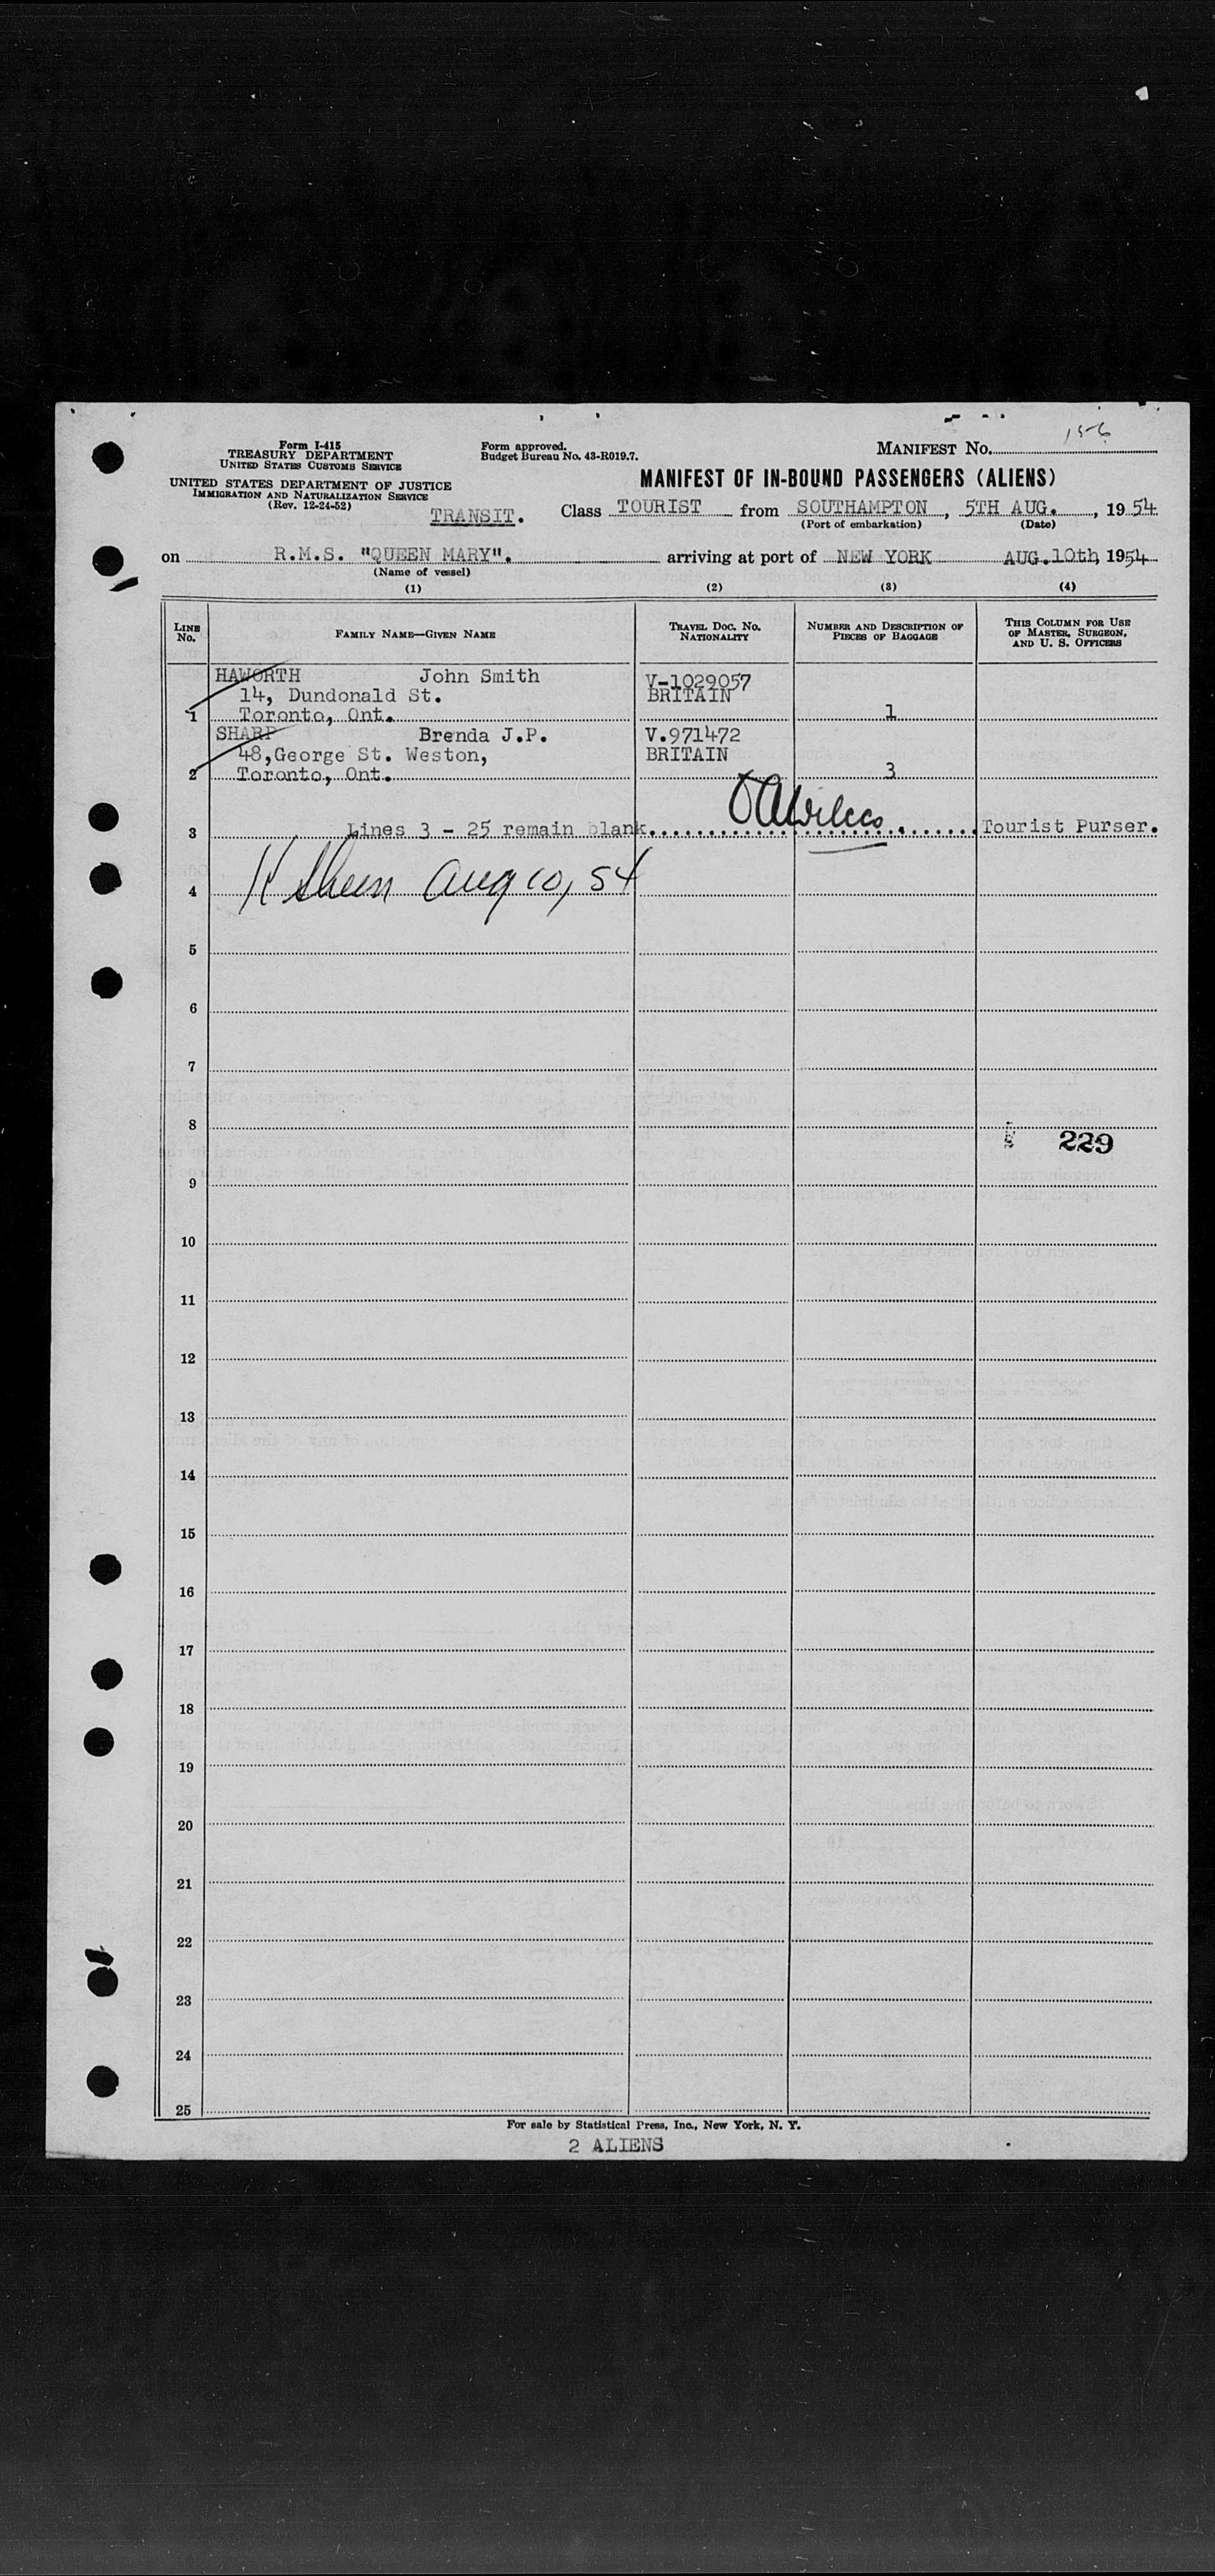 Form I-415
TREASURY DEPARTMENT
UNITED STATES CUSTOMS SERVICE
UNITED STATES DEPARTMENT OF JUSTICE
IMMIGRATION AND NATURALIZATION SERVICE
(Rev. 12-24-52)
Form approved.
Budget Bureau No. 43-R019.7.
MANIFEST NO. 156
MANIFEST OF IN-BOUND PASSENGERS (ALIENS)
TRANSIT. Class TOURIST from SOUTHAMPTON, 5TH AUG., 1954
(Port of embarkation) (Date)
on R.M.S. "QUEEN MARY". arriving at port of NEW YORK AUG.10th, 1954
(Name of vessel)
(1) (2) (3) (4)
LINE NO. FAMILY NAME—GIVEN NAME TRAVEL DOC. NO. NATIONALITY NUMBER AND DESCRIPTION OF PIECES OF BAGGAGE THIS COLUMN FOR USE OF MASTER, SURGEON, AND U. S. OFFICERS
HAWORTH John Smith V-1029057
14, Dundonald St. BRITAIN
1 Toronto, Ont. 1
SHARP Brenda J.P. V.971472
48,George St. Weston, BRITAIN
2 Toronto, Ont. 3
3 Lines 3 - 25 remain blank. Tourist Purser.
4 Aug 10, 54
5
6
7
8
229
9
10
11
12
13
14
15
16
17
18
19
20
21
22
23
24
25
For sale by Statistical Press, Inc., New York, N. Y.
2 ALIENS